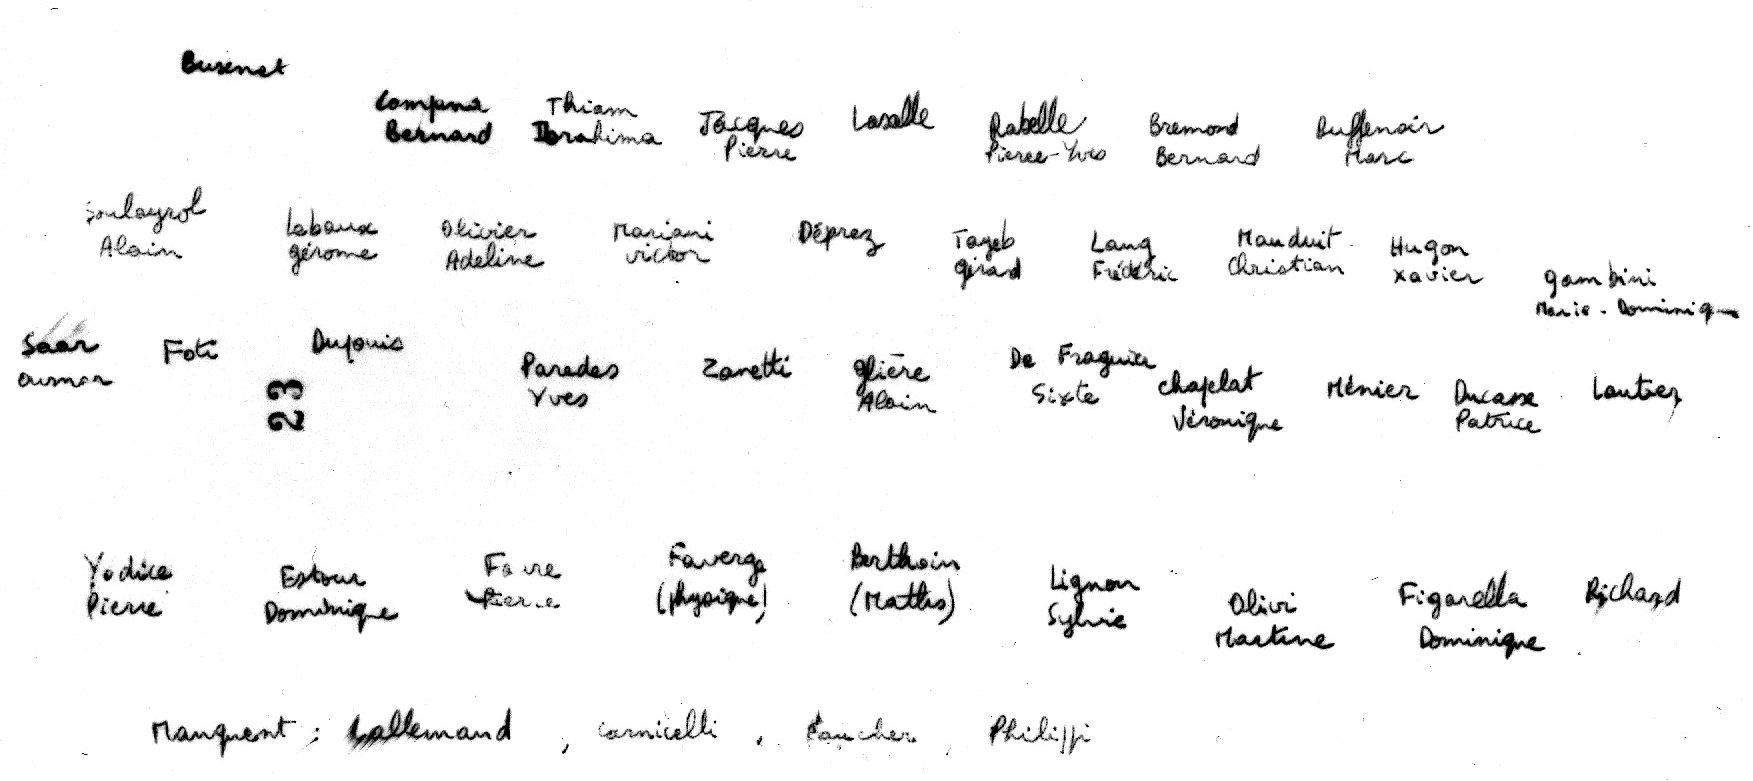 Busenet
Campana Thiam Jacques Lasalle Rabelle Bremond Buffenoir
Bernard Ibrahima Pierre Pierre-Yves Bernard Marc
Soulayrol Labaux Olivier Mariani Déprez Tayeb Lang Mauduit Hugon Gambini
Alain gérome Adeline victor Girard Frédéric Christian Xavier Marie-Dominique
Saar Foti Dupuis Paredes Zanetti Glière De Fraguier Chaplat Ménier Ducasse Lautier
Ousmar Yves Alain Sixte Véronique Patrice
23
Yodice Estour Favre Faverge Berthoin Lignon Olivi Figarella Richard
Pierre Dominique Pierre (physique) (Maths) Sylvie Martine Dominique
Manquent : Lallemand , Carnicelli , Faucher , Philippi